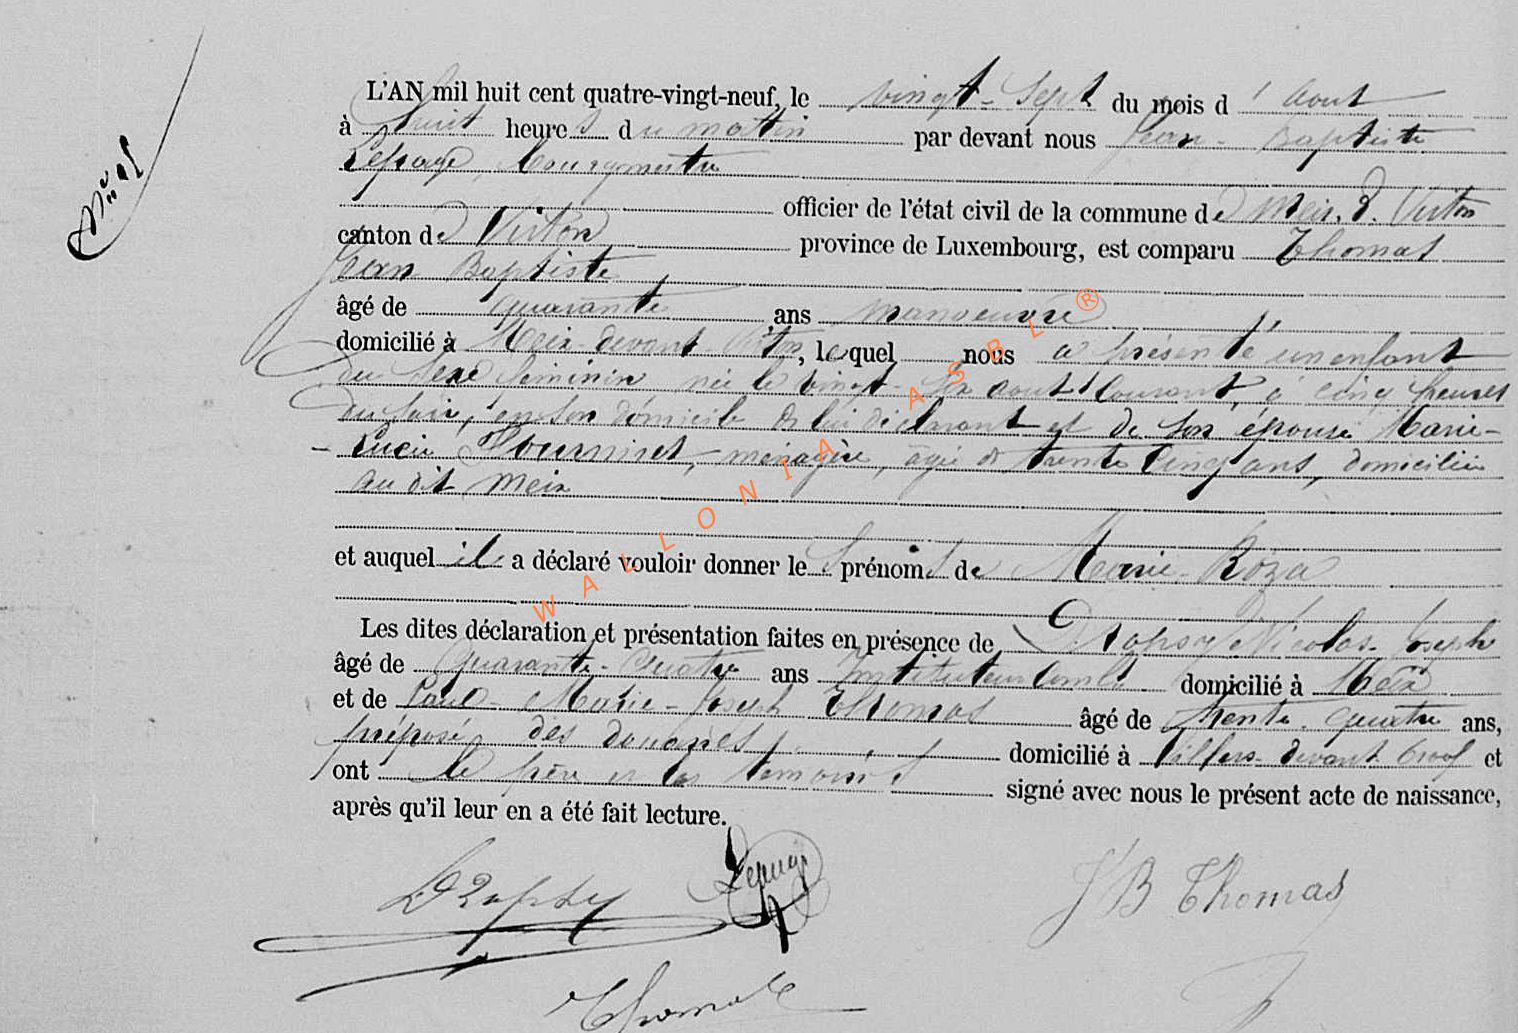 L'AN mil huit cent quatre-vingt-neuf, le vingt-sept du mois d'Aout
à huit heures du mattin par devant nous Jean-Baptiste
Lepage, bourgmestre
officier de l'état civil de la commune de Meix. d. Virton
canton de Virton province de Luxembourg, est comparu Thomas
Jean Baptiste
âgé de quarante ans manoeuvre
domicilié à Meix-devant-Virton, lequel nous a présenté un enfant
du sexe féminin née le vingt-six aout courant, à cinq heures
du soir, en son domicile de lui déclarant et de son épouse Marie-
Lucie, ménagère, agée de trente cinq ans, domiciliée
au dit Meix
et auquel il a déclaré vouloir donner les prénoms de Marie-Roza
Les dites déclaration et présentation faites en présence de Dropsy Nicolas-Joseph
âgé de quarante-quatre ans Instituteur coml domicilié à Meix
et de Paul-Marie-Joseph Thomas âgé de trente-quatre ans,
préposé des douanes, domicilié à Villers-devant-Orval et
ont le père et les témoins signé avec nous le présent acte de naissance,
après qu'il leur en a été fait lecture.
Dropsy Lepage JB Thomas
Thomas
WALLONIA ASBL ®